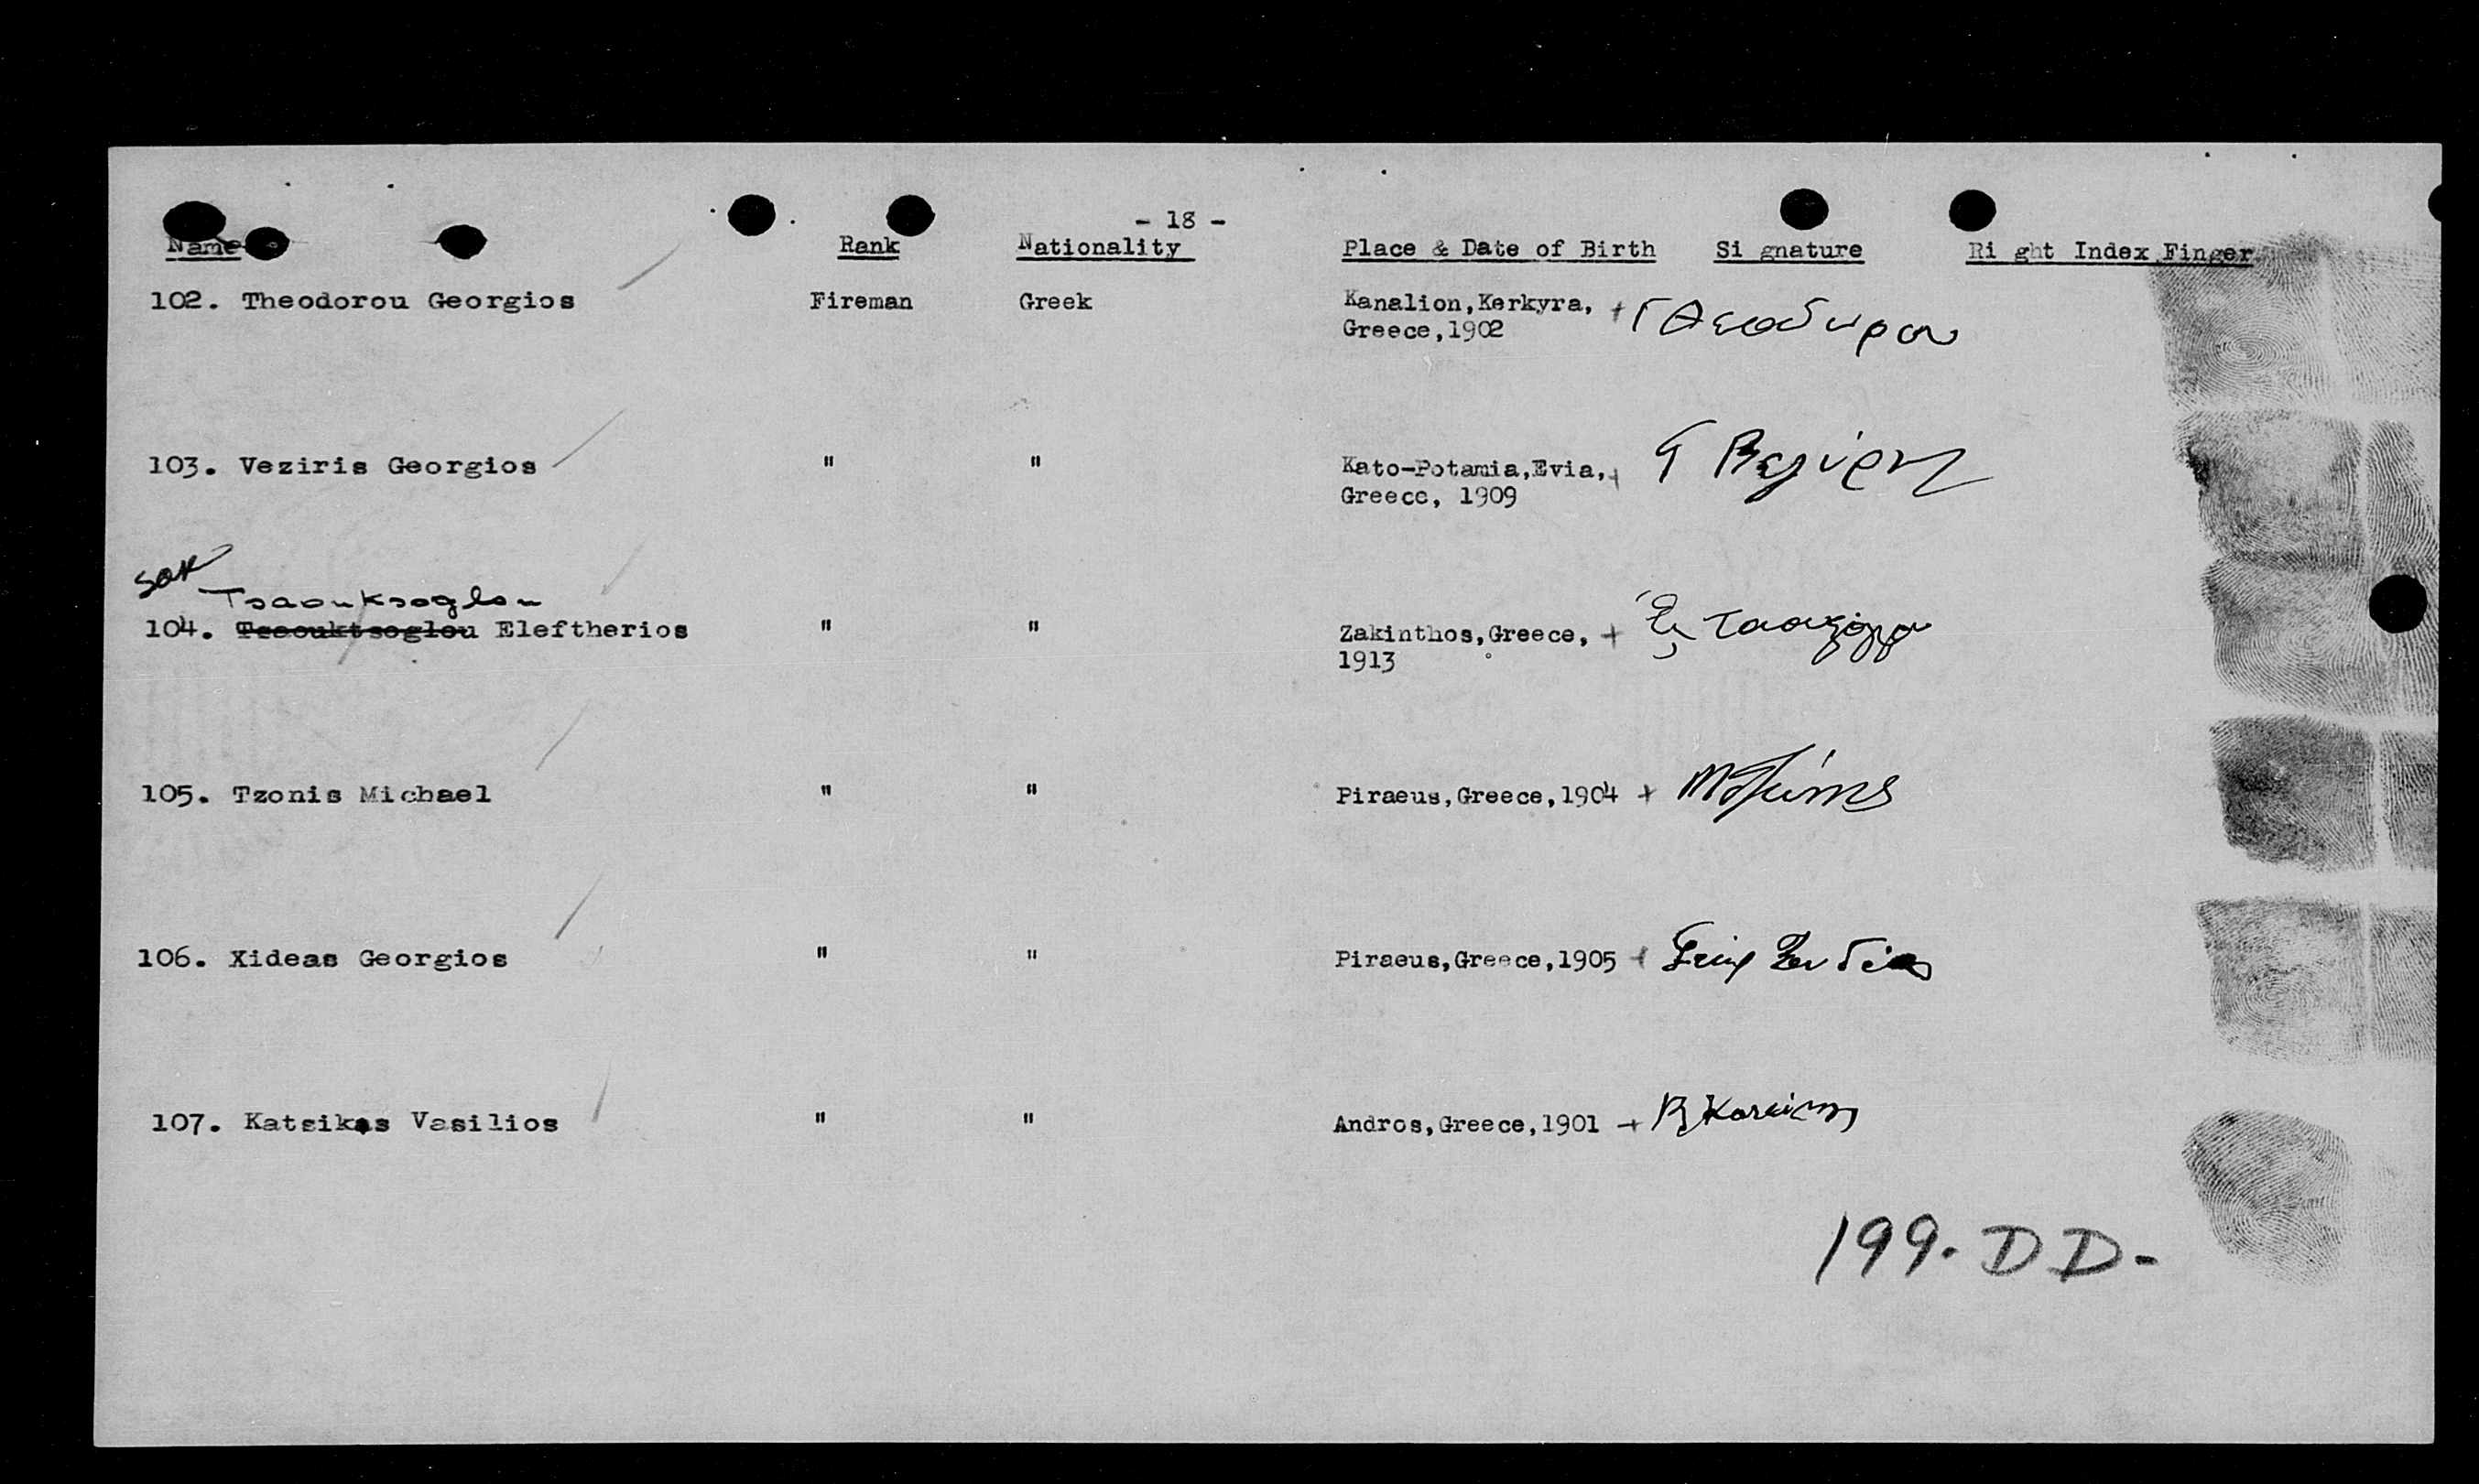 - 18 -
Name Rank Nationality Place & Date of Birth Si gnature Ri ght Index Finger
102. Theodorou Georgios Fireman Greek Kanalion,Kerkyra, + Γ Θεοδωρου
Greece,1902
103. Veziris Georgios " " Kato-Potamia,Evia, Γ Βεζύρης
Greece, 1909
Tsaouksoglou
104. Tsaouktsoglou Eleftherios " " Zakinthos,Greece, +
1913
105. Tzonis Michael " " Piraeus,Greece,1904 + Μ Τζώνης
106. Xideas Georgios " " Piraeus,Greece,1905
107. Katsikas Vasilios " " Andros,Greece,1901 +
199. D D-